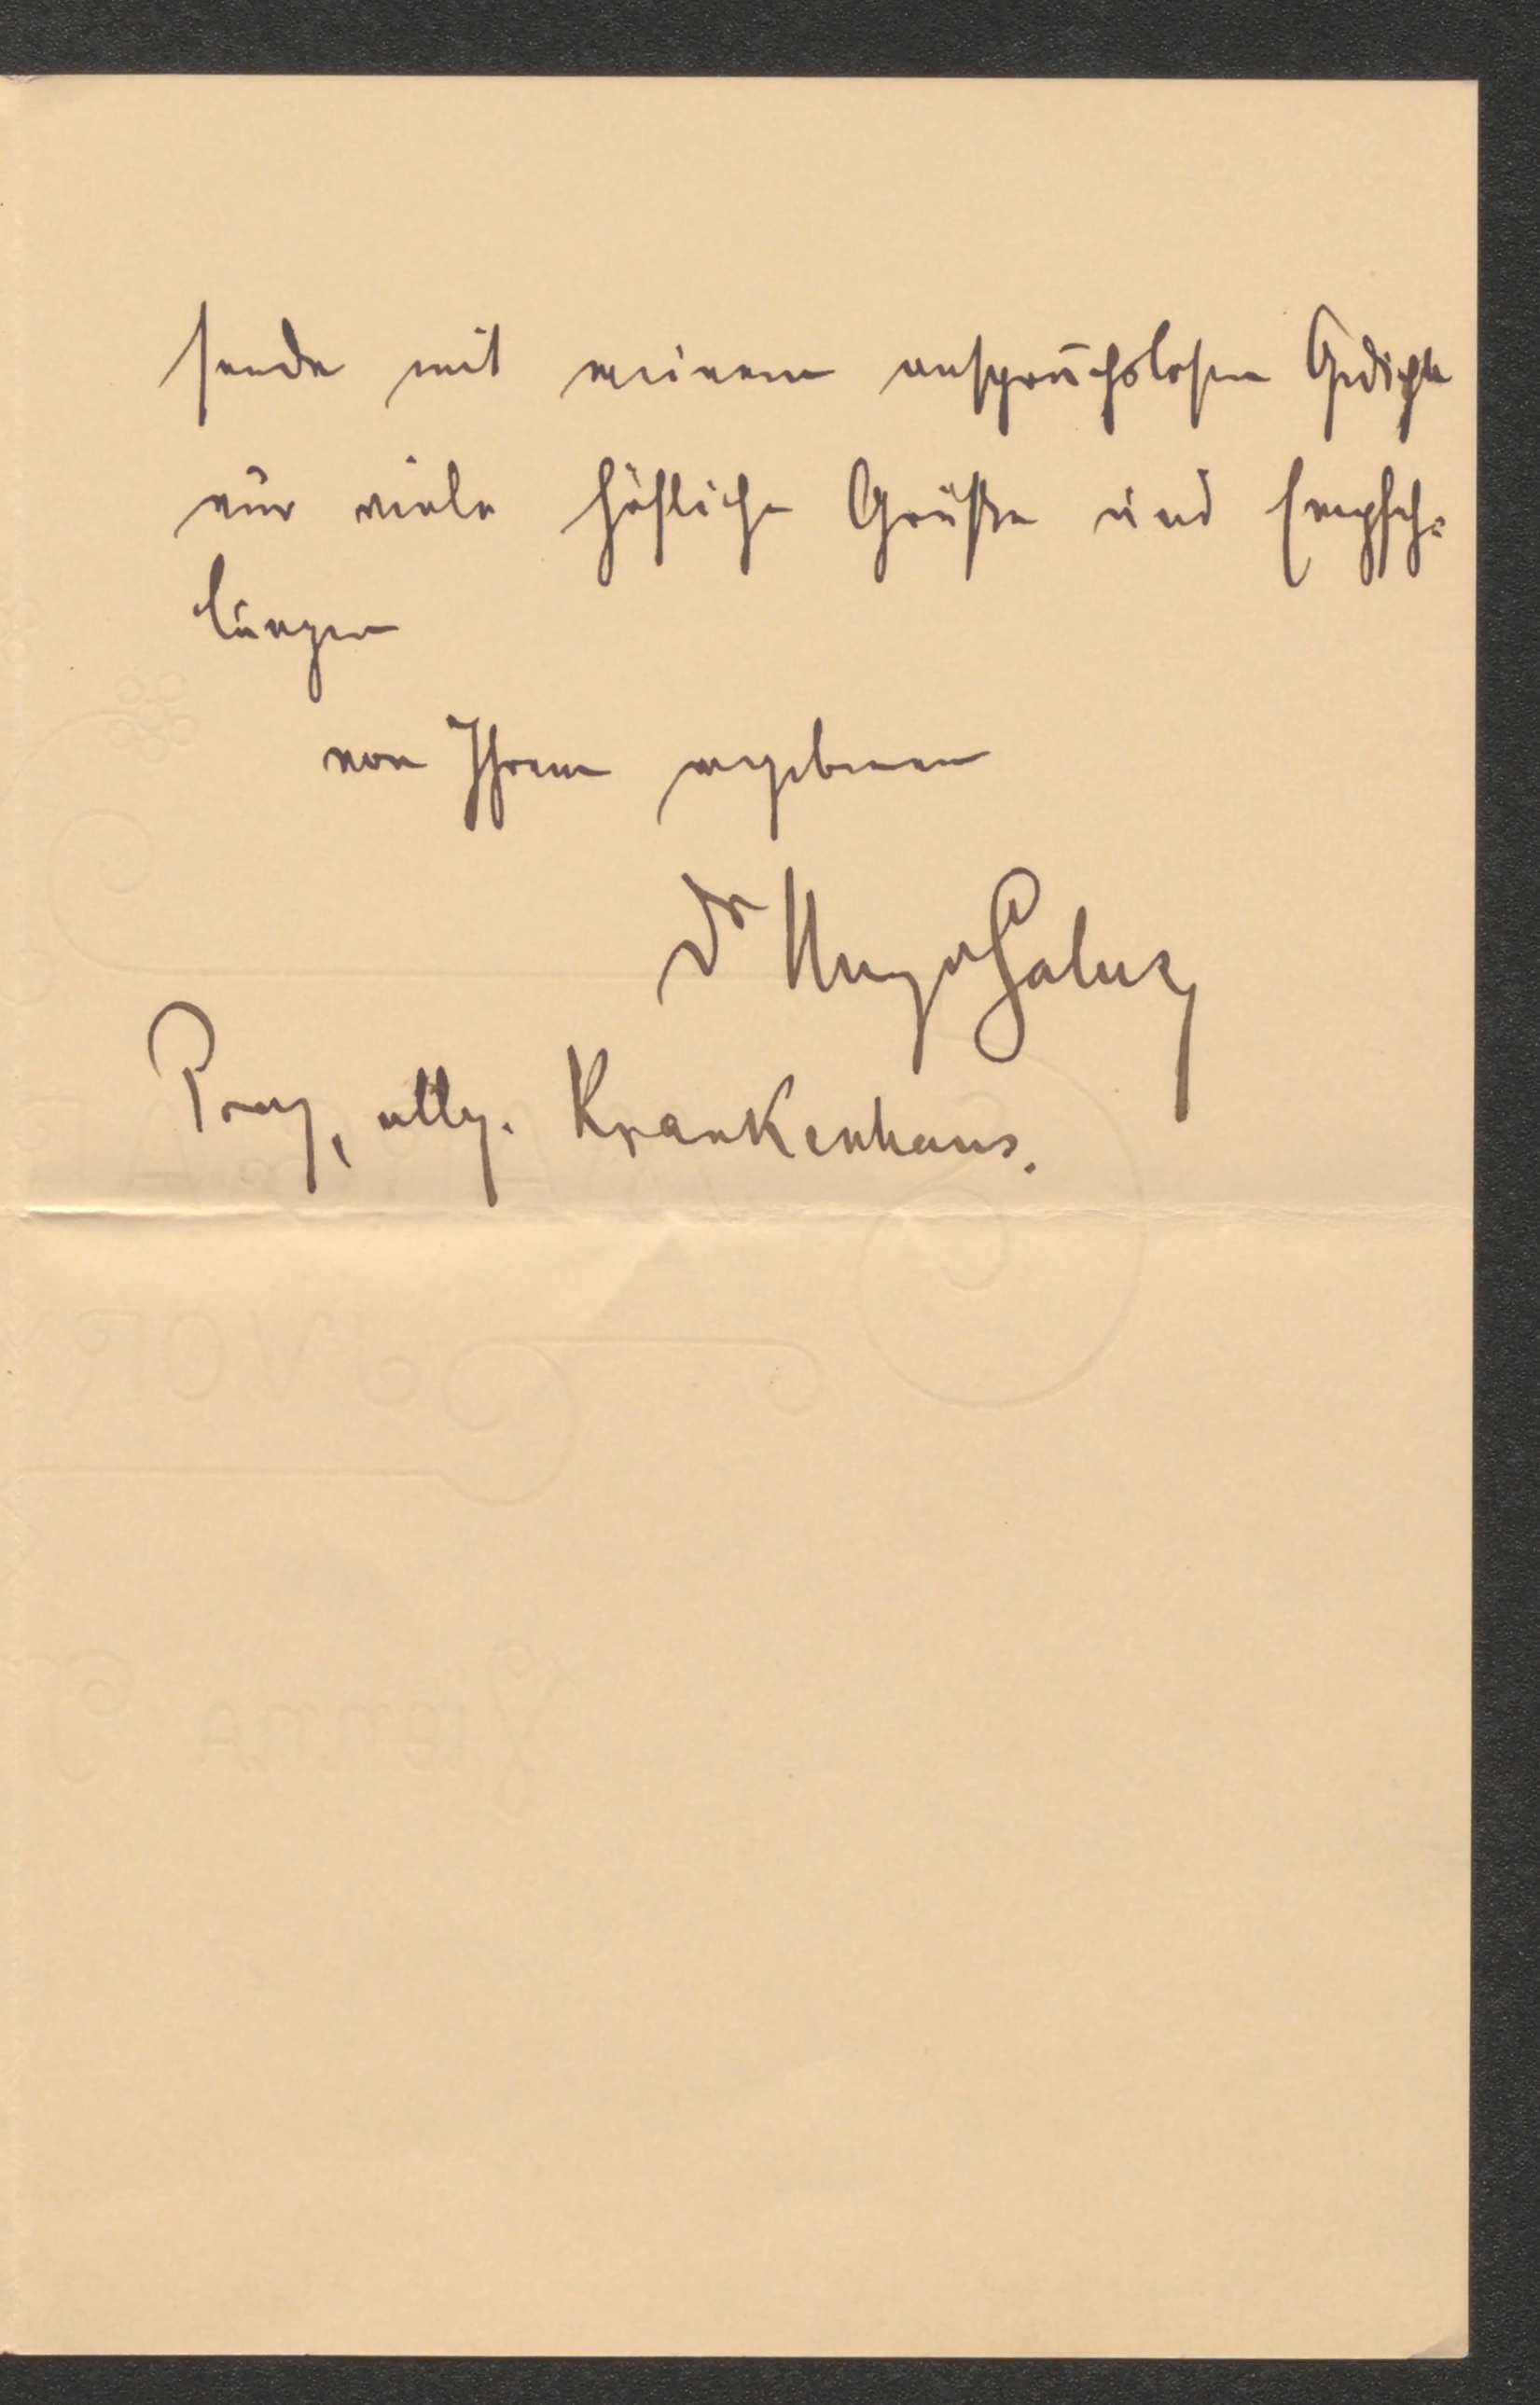 sende mit meinem anspruchslosen Gedichte
nur viele höfliche Grüße und Empfeh-
lungen
von Ihrem ergebenen
Dr Hugo Salus
Prag, allg. Krankenhaus.